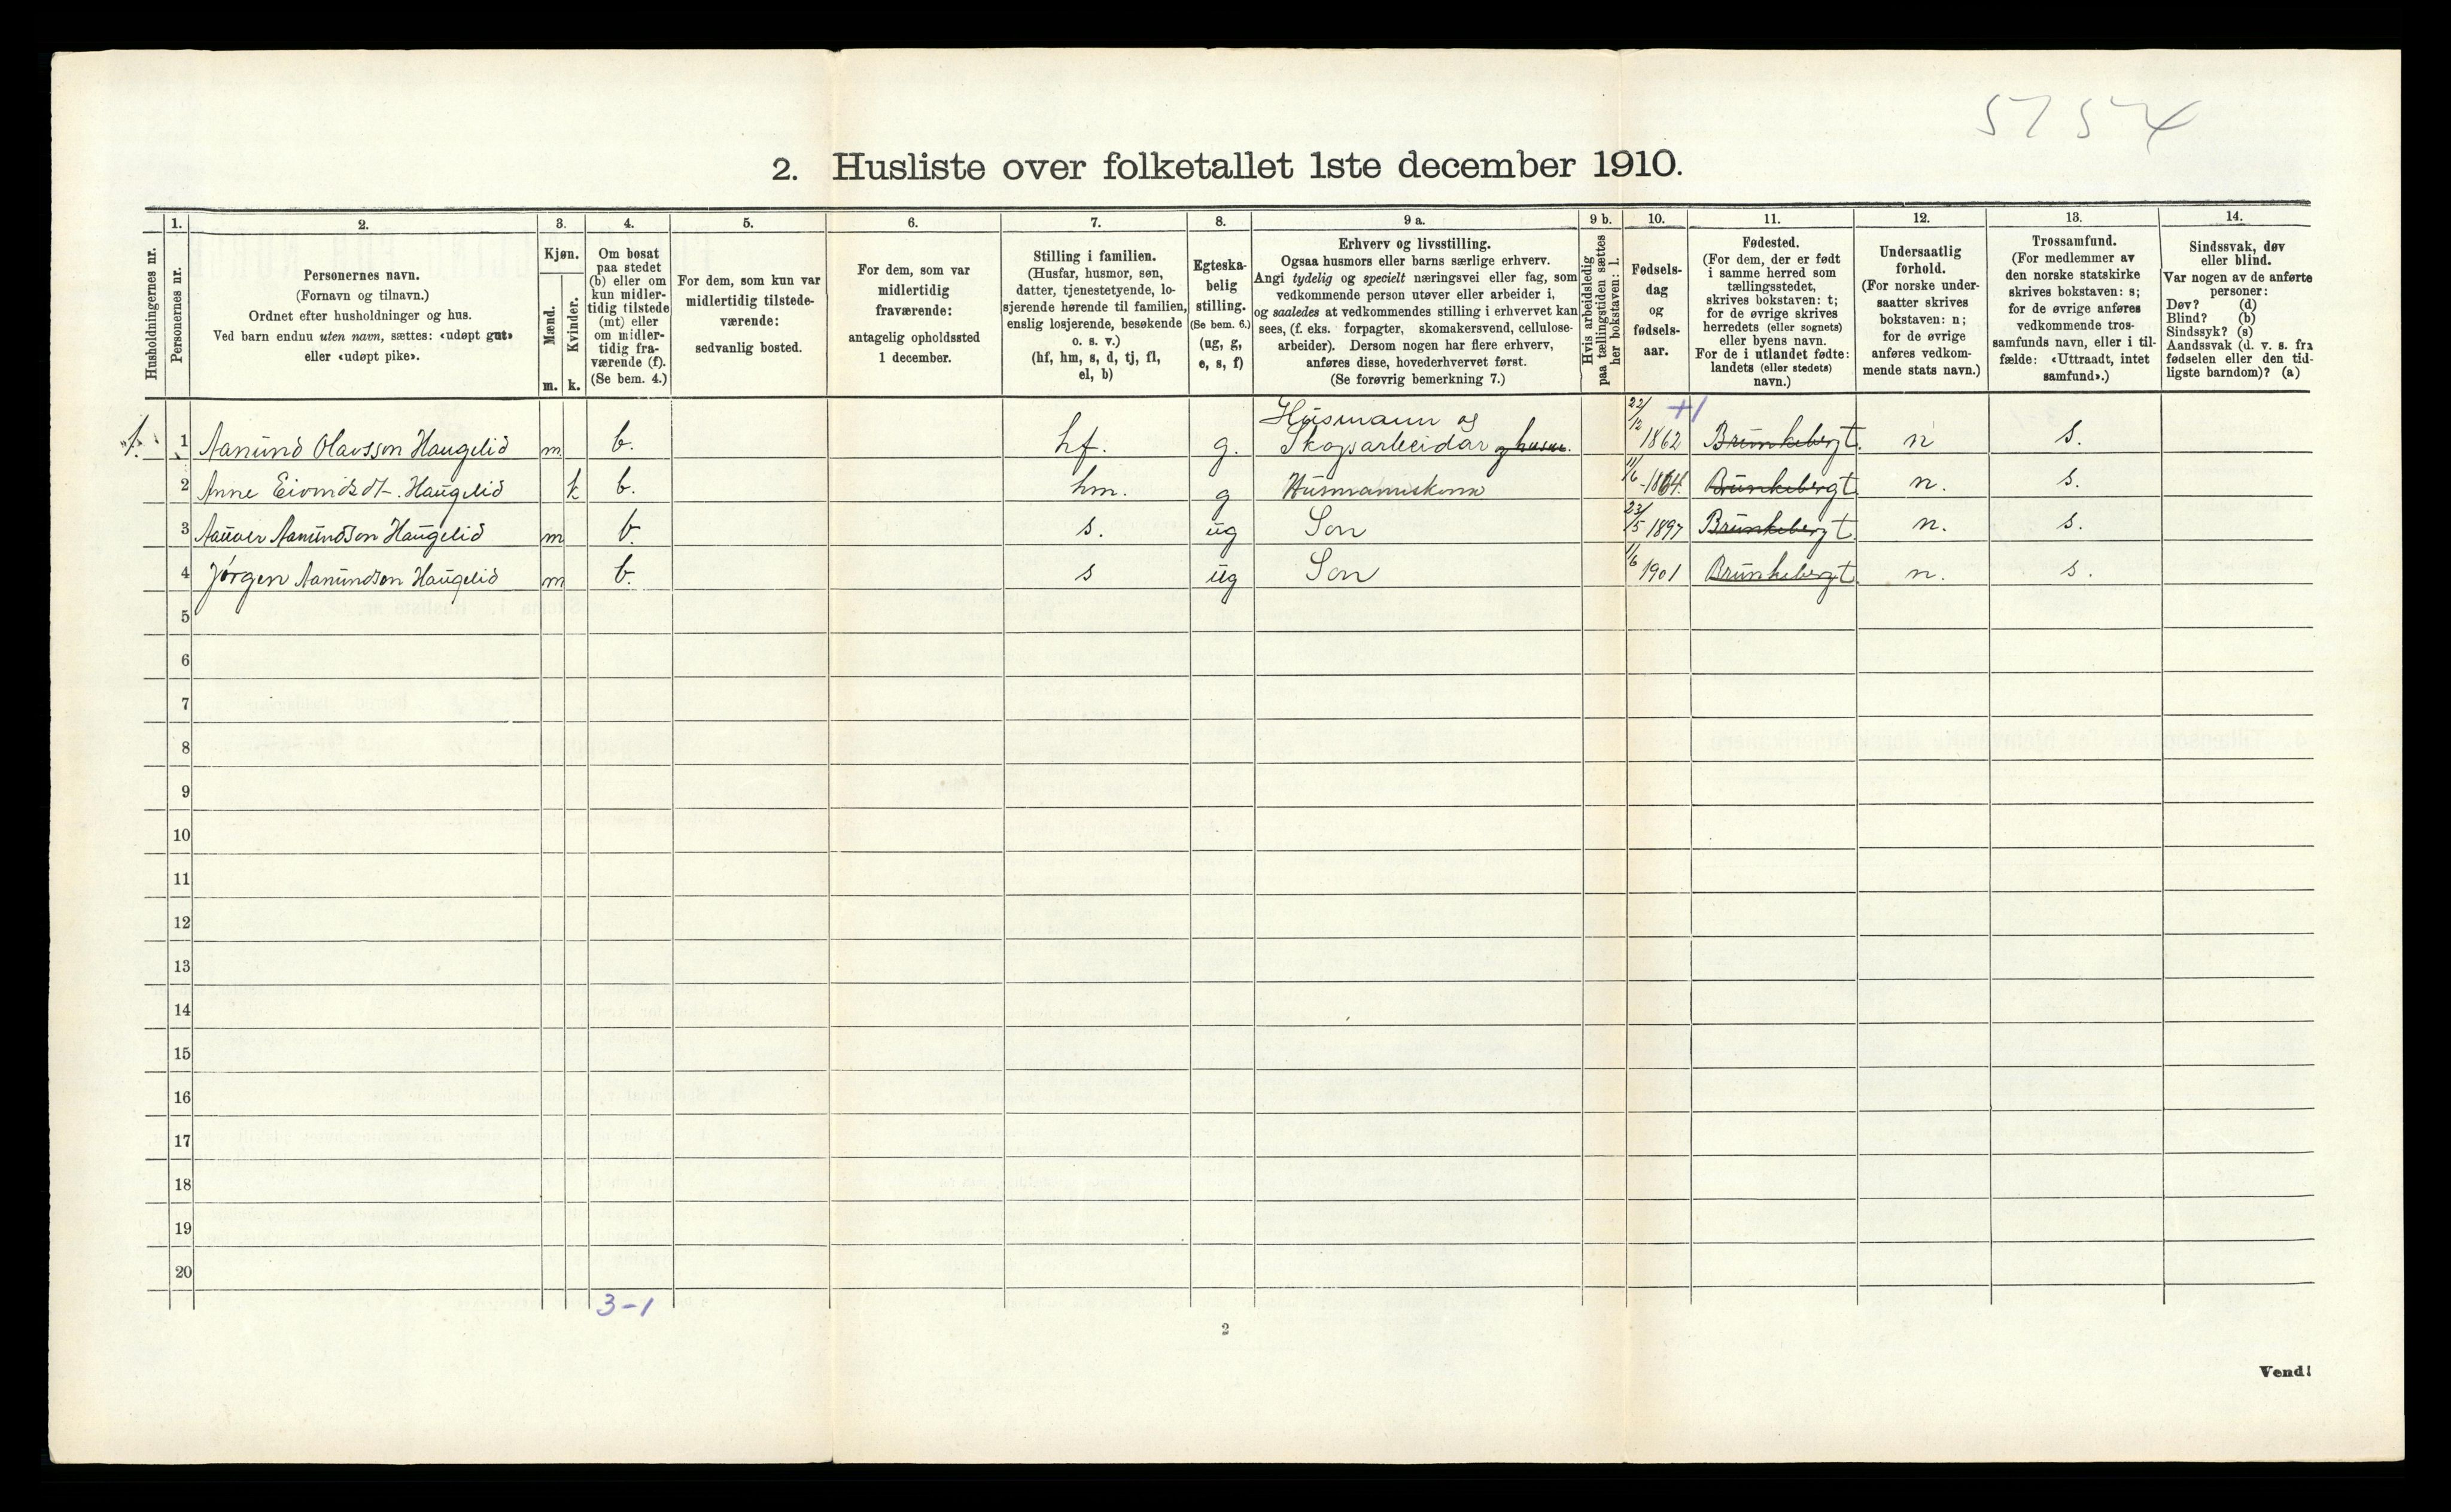 5754
2. Husliste over folketallet 1ste december 1910.
Husholdningernes nr.
1.
Personernes nr.
2.
Personernes navn.
(Fornavn og tilnavn.)
Ordnet efter husholdninger og hus.
Ved barn endnu uten navn, sættes: «udøpt gut»
eller «udøpt pike».
3.
Kjøn.
Mænd.
m.
Kvinder.
k.
4.
Om bosat
paa stedet
(b) eller om
kun midler-
tidig tilstede
(mt) eller
om midler-
tidig fra-
værende (f).
(Se bem. 4.)
5.
For dem, som kun var
midlertidig tilstede-
værende:
sedvanlig bosted.
6.
For dem, som var
midlertidig
fraværende:
antagelig opholdssted
1 december.
7.
Stilling i familien.
(Husfar, husmor, søn,
datter, tjenestetyende, lo-
sjerende hørende til familien,
enslig losjerende, besøkende
o. s. v.)
(hf, hm, s, d, tj, fl,
el, b)
8.
Egteska-
belig
stilling.
(Se bem. 6.)
(ug, g,
e, s, f)
9 a.
Erhverv og livsstilling.
Ogsaa husmors eller barns særlige erhverv.
Angi tydelig og specielt næringsvei eller fag, som
vedkommende person utøver eller arbeider i,
og saaledes at vedkommendes stilling i erhvervet kan
sees, (f. eks. forpagter, skomakersvend, cellulose-
arbeider). Dersom nogen har flere erhverv,
anføres disse, hovederhvervet først.
(Se forøvrig bemerkning 7.)
9 b.
Hvis arbeidsledig
paa tællingstiden sættes
her bokstaven: l.
10.
Fødsels-
dag
og
fødsels-
aar.
11.
Fødested.
(For dem, der er født
i samme herred som
tællingsstedet,
skrives bokstaven: t;
for de øvrige skrives
herredets (eller sognets)
eller byens navn.
For de i utlandet fødte:
landets (eller stedets)
navn.)
12.
Undersaatlig
forhold.
(For norske under-
saatter skrives
bokstaven: n;
for de øvrige
anføres vedkom-
mende stats navn.)
13.
Trossamfund.
(For medlemmer av
den norske statskirke
skrives bokstaven: s;
for de øvrige anføres
vedkommende tros-
samfunds navn, eller i til-
fælde: «Uttraadt, intet
samfund».)
14.
Sindssvak, døv
eller blind.
Var nogen av de anførte
personer:
Døv? (d)
Blind? (b)
Sindssyk? (s)
Aandssvak (d. v. s. fra
fødselen eller den tid-
ligste barndom)? (a)
Husmann og +1
1. 1 Aamund Olavsson Haugelid m b. hf. g. Skogsarbeidar og husm. 22/12 1862 Brunkeberg t n s.
2 Anne Eivindsdt. Haugelid k b. hm. g Husmannskona 11/6 -1864. Brunkeberg t n. s.
3 Aanund Haugelid m b. s. ug Son 23/5 1897 Brunkeberg t n. s.
4 Jørgen Aamundson Haugelid m b. s ug Son 11/6 1901 Brunkeberg t n. s.
5
6
7
8
9
10
11
12
13
14
15
16
17
18
19
20
3-1
2
Vend!